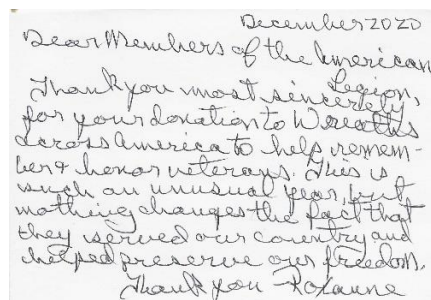 December 2020
Dear Members of the American
Legion,
Thank you most sincerely
for your donation to Wreaths
across America to help remem-
ber & honor veterans. This is
such an unusual year, but
nothing changes the fact that
they served our country and
helped preserve our freedom.
Thank you - Roxanne